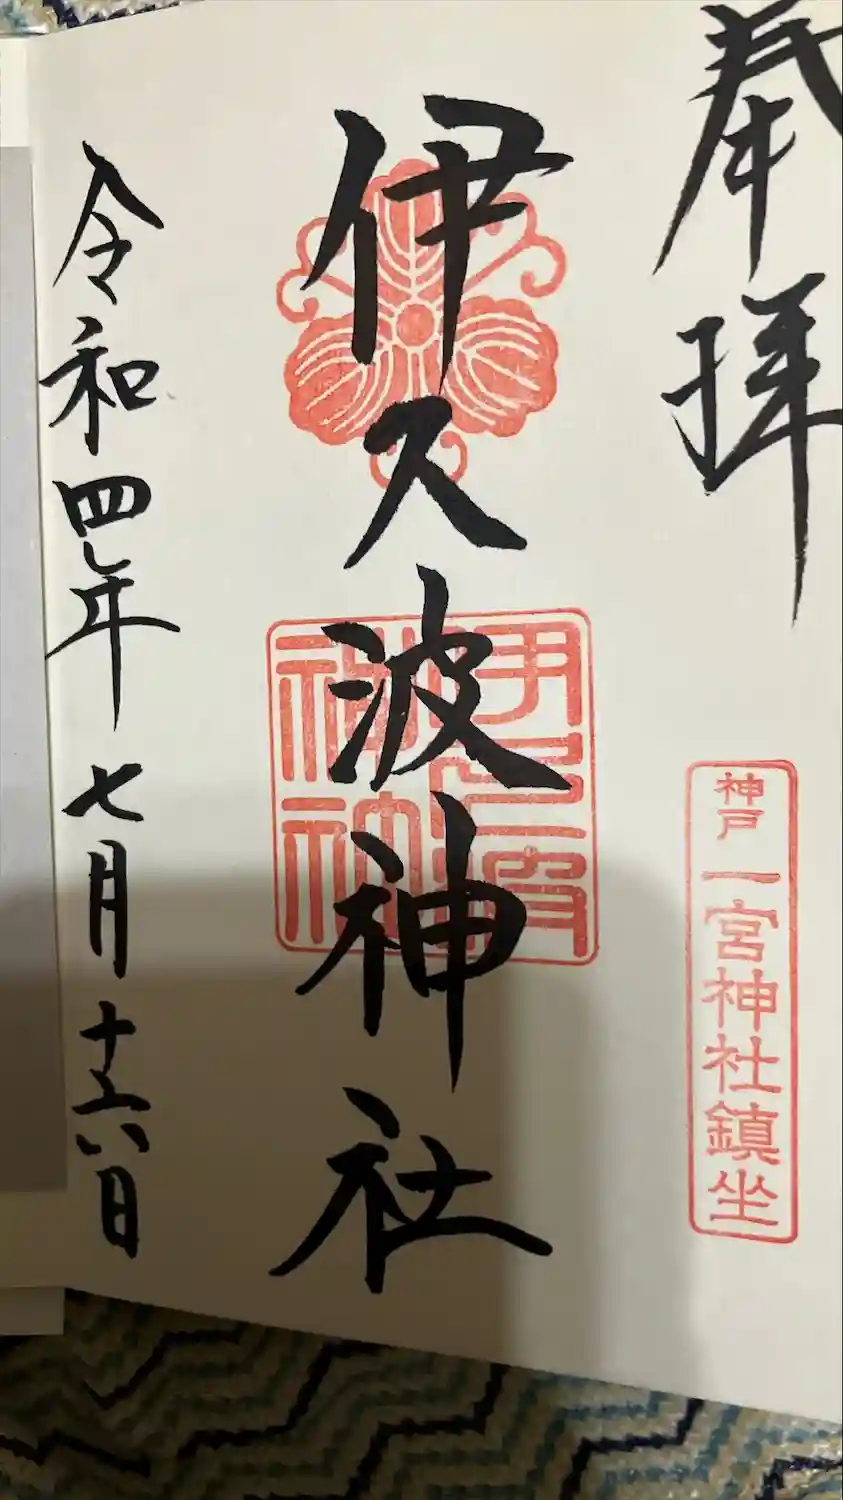 奉拝
神戸
一宮神社鎮坐
伊久波神社
令和四年七月十六日